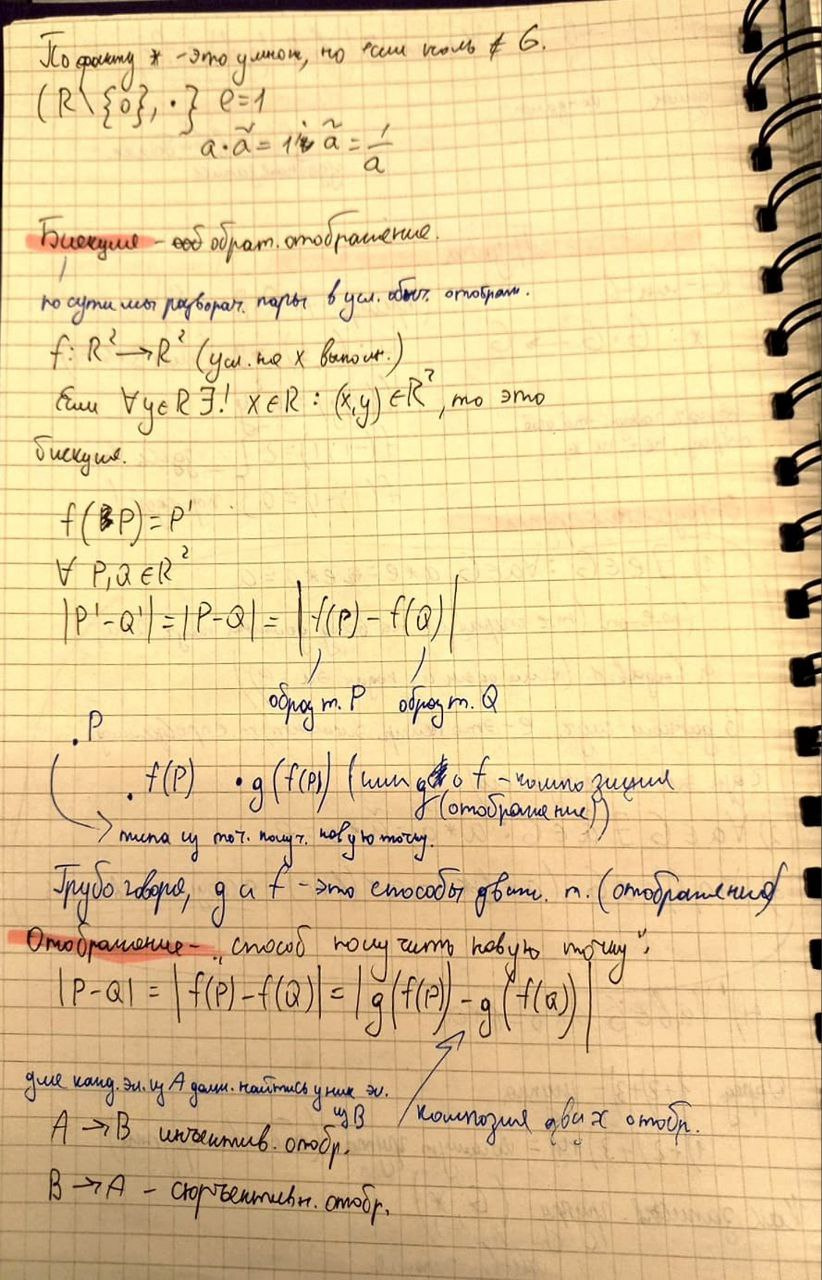 По факту * - это умнож, но если ноль ∉ G.
(R\{0}, ·} e=1
a·ã = 1 ã = 1/a
Биекция - обрат. отображение.
по сути мы разворач. пары в усл. отображ.
f: R² → R² (усл. на x выполн.)
Если ∀y∈R ∃! x∈R : (x,y) ∈R², то это
биекция.
f(P) = P'
∀ P,Q ∈R²
|P'-Q'| = |P-Q| = |f(P) - f(Q)|
образ т. P образ т. Q
. P
. f(P) · g(f(P)) (или g∘f - композиция
(отображение))
типа из точ. получ. новую точку.
Грубо говоря, g и f - это способы движ. т. (отображения)
Отображение - „способ получить новую точку".
|P-Q| = |f(P) - f(Q)| = |g(f(P)) - g(f(Q))|
для кажд. эл. из A долж. найтись уник эл.
из B
композия двух отобр.
A → B инъектив. отобр.
B → A - сюръективн. отобр.